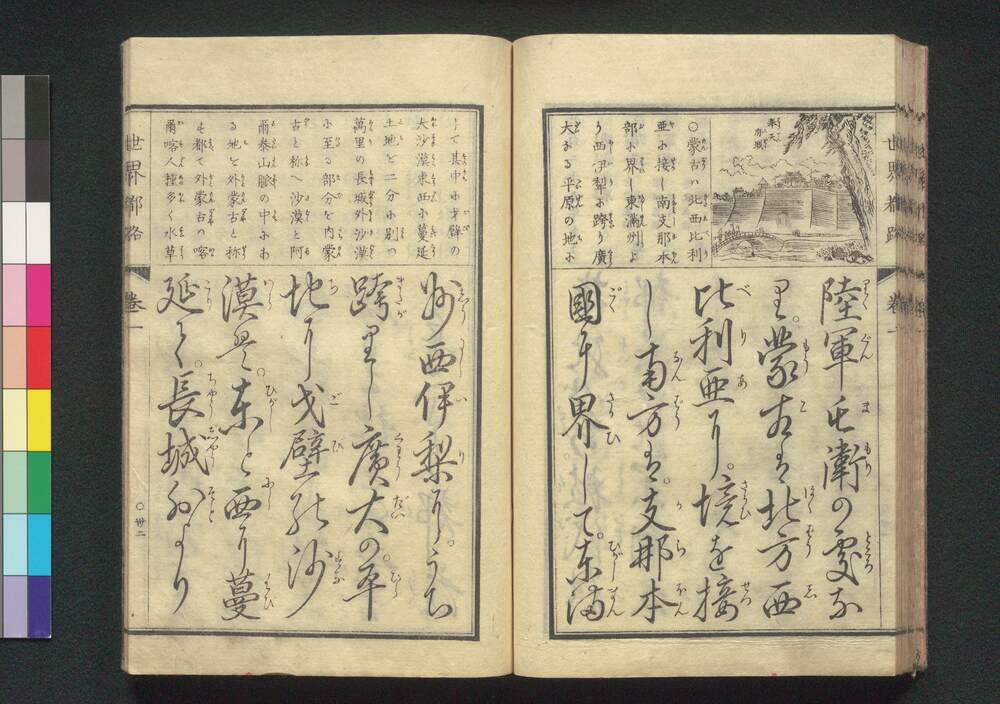 奉天
府城
〇蒙古ハ北西比利
亜に接し南支那本
部に界し東滿州よ
り西伊犁に跨り廣
大なる平原の地に
陸軍屯衛の處な
里。蒙古は北方西
比利亜に。境を接
し南方は。支那本
國に界して。東満
して其中に戈壁の
大沙漠東西に蔓延
土地を二分に別つ
萬里の長城外沙漠
に至る部分を内蒙
古と称へ沙漠と阿
爾泰山脈の中にあ
る地を外蒙古と称
す都て外蒙古の喀
爾喀人種多く水草
州西伊梨に。うち
跨里し廣大の。平
地に戈壁の沙
漠は。東と西に蔓
延て。長城外より
世界都路
卷一
〇卅二